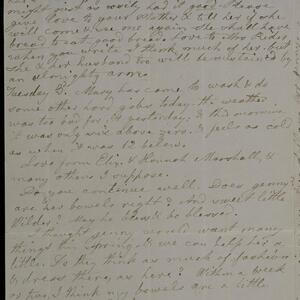 might just as well, had I good
give love to your Mother & tell her if she
will come & see me again she shall have
bread to eat good bread. Love to Mrs.
when you write. I think much of her, but
She & her husband too will be sustained by
an almighty arm.
Tuesday P. Mary has come to wash & do
some other hoeg jobs today. The weather
was too bad for it yesterday, & this morning
it was only six above zero. I feel as cold
as when it was 12 below.
Love from Eliz. & Hannah Marshall, &
many others I suppose.
Do you continue well. Does Jenny?
are her bowels right? And sweet little
Wilder? May he be blessed.
I thought Jenny would want many
things this Spring & we can help her a
little. Do they think as much of fashion
& dress there, as here? Within a week
or two I think my bowels are a little